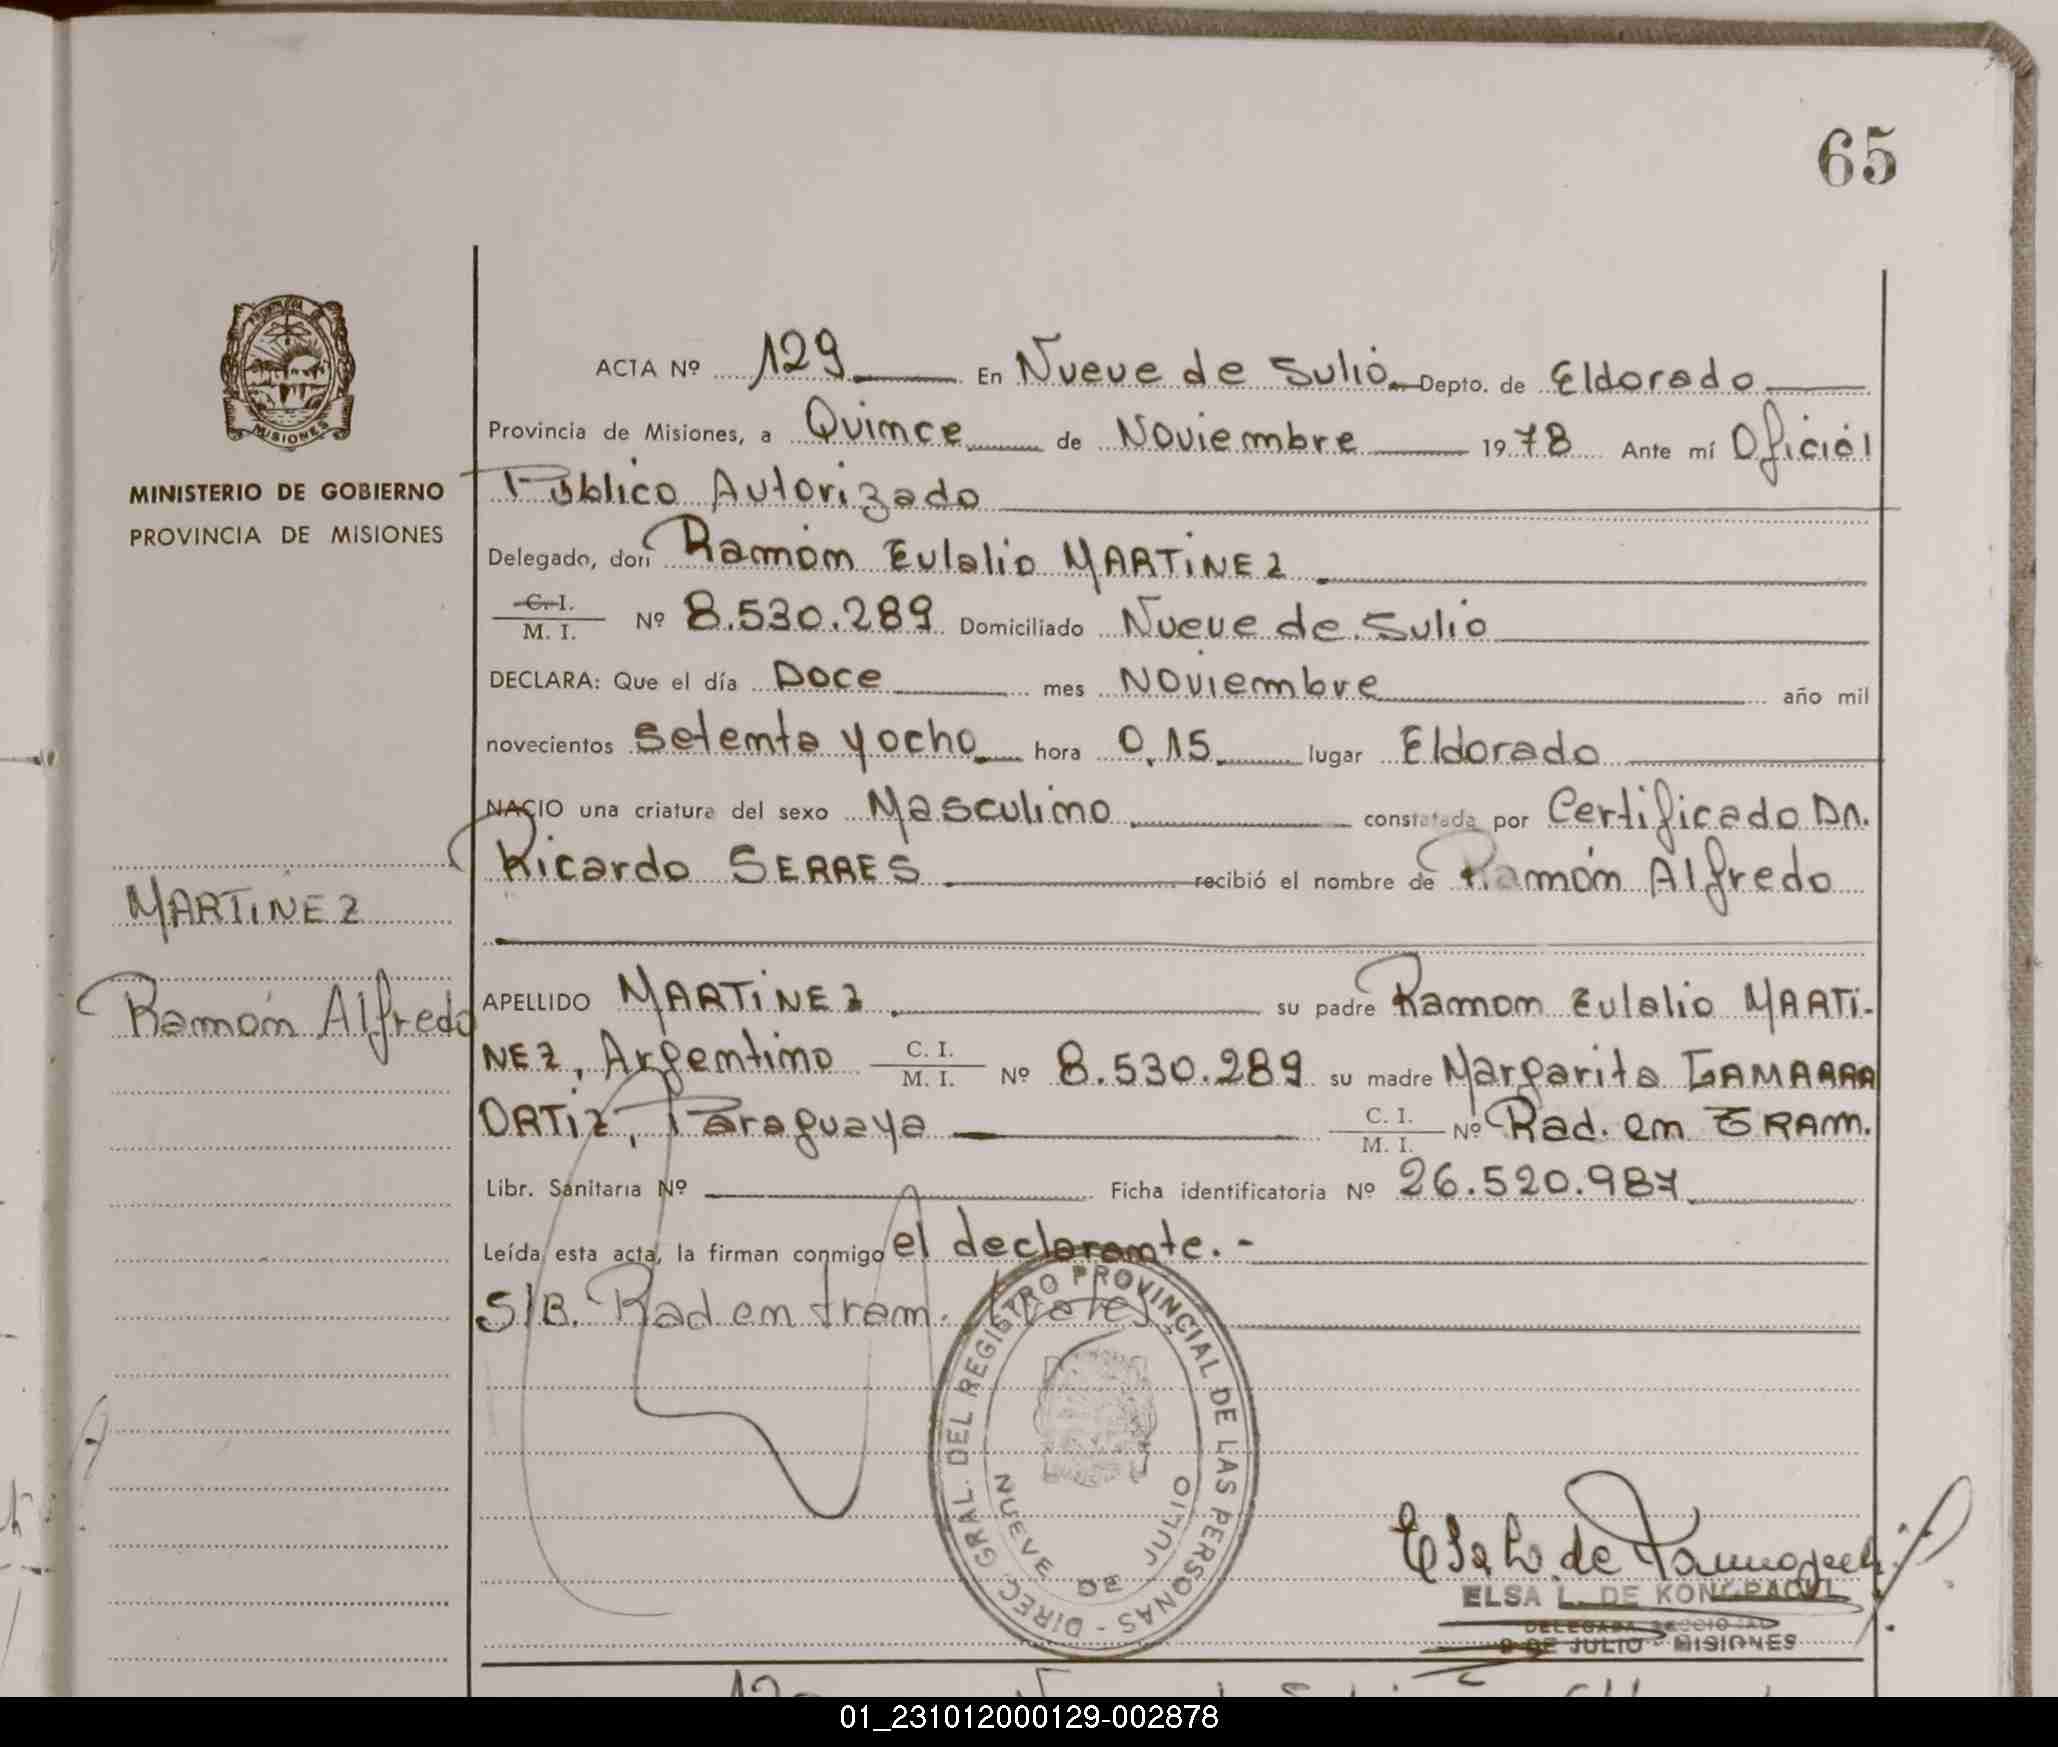 65
ACTA Nº 129 En Nueve de Julio. Depto. de Eldorado
Provincia de Misiones, a Quince de Noviembre 1978 Ante mí Oficial
Público Autorizado
Delegado, don Ramón Eulalio MARTINEZ
C. I. / M. I. Nº 8.530.289 Domiciliado Nueve de Julio
MINISTERIO DE GOBIERNO
PROVINCIA DE MISIONES
DECLARA: Que el día Doce mes Noviembre año mil
novecientos setenta y ocho hora 0,15 lugar Eldorado
NACIO una criatura del sexo Masculino constatada por Certificado Dr.
Ricardo SERRES recibió el nombre de Ramón Alfredo
MARTINEZ
Ramón Alfredo
APELLIDO MARTINEZ su padre Ramon Eulalio MARTI-
NEZ, Argentino C. I. / M. I. Nº 8.530.289 su madre Margarita GAMARRA
ORTIZ, Paraguaya C. I. / M. I. Nº Rad. en TRAM.
Libr. Sanitaria Nº Ficha identificatoria Nº 26.520.987
Leída esta acta, la firman conmigo el declarante.-
S/B. Rad en tram. Vale
DIREC. GRAL. DEL REGISTRO PROVINCIAL DE LAS PERSONAS -
NUEVE DE JULIO
ELSA L. DE
DELEGADA
9 DE JULIO - MISIONES
01_231012000129-002878